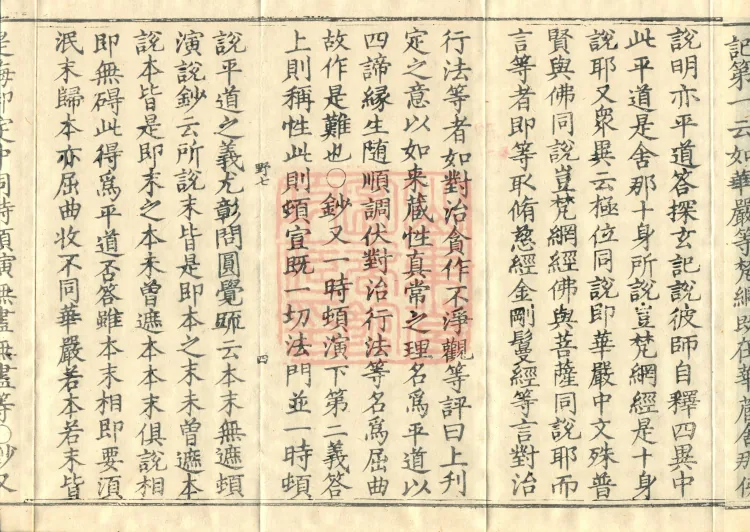 記第一云如華嚴等梵網即在華嚴舍那
說明亦平道答探玄記說彼師自釋四異中
此平道是舍那十身所說豈梵網經是十身
說耶又衆異云極位同說即華嚴中文殊普
賢與佛同說豈梵網經佛與菩薩同說耶而
言等者即等取脩慈經金剛鬘經等言對治
行法等者如對治貪作不淨觀等評曰上利
定之意以如来蔵性真常之理名爲平道以
四諦緣生随順調伏對治行法等名爲屈曲
故作是難也○鈔又一時頓演下第二義答
上則稱性此則頓宣既一切法門並一時頓
野七
四
說平道之義尤彰問圓覺䟽云本末無遮頓
演說鈔云所說末皆是即本之末未曾遮本
說本皆是即末之本未曾遮本本末俱說相
即無碍此得爲平道否答雖本末相即要湏
泯末歸本亦屈曲收不同華嚴若本若末皆
是海印定中同時頓演無盡無盡等○鈔又